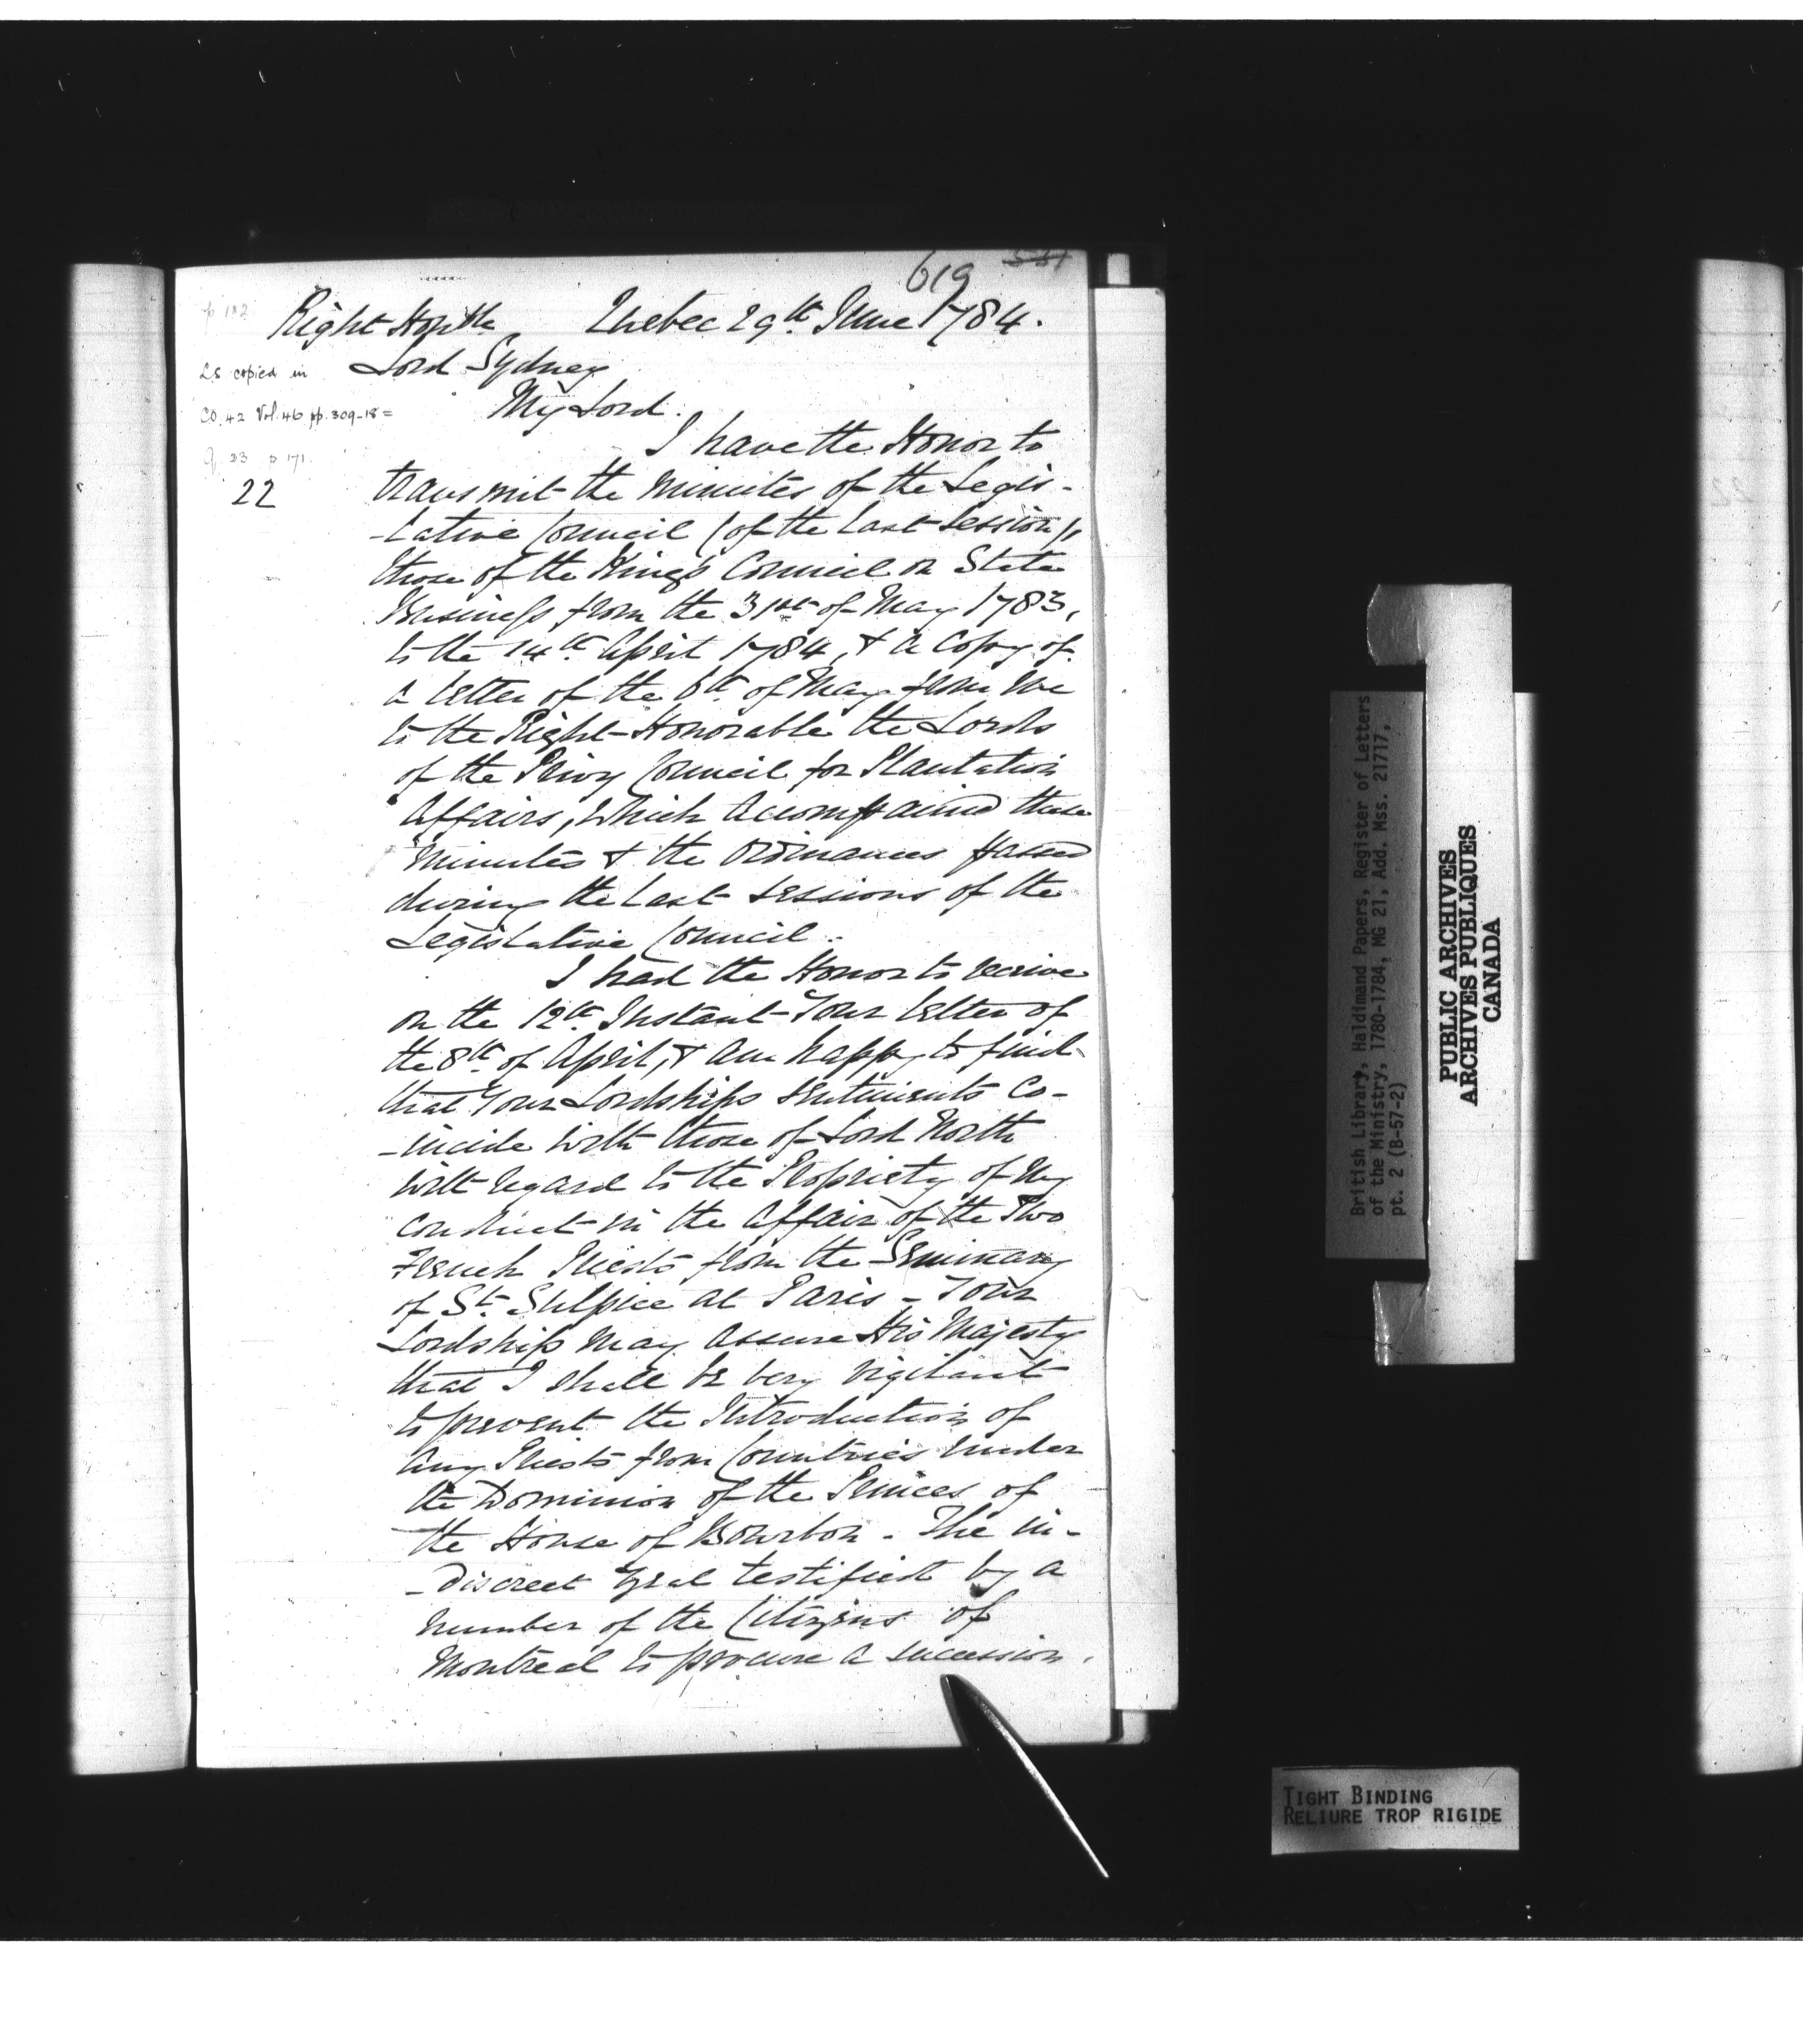 619
p. 182
Right Honble Quebec 29th June 1784.
Ls copied in Lord Sydney
CO. 42 Vol. 46 pp. 309-18 = My Lord.
Q 23 p 171.
I have the Honor to
22 transmit the Minutes of the Legis-
-lative Council (of the last Session),
those of the King's Council on State
Business from the 31st of May 1783,
to the 14th April 1784, & a Copy of
a letter of the 6th of May from me
to the Right Honorable the Lords
of the Privy Council for Plantation
Affairs, which accompanied these
Minutes & the Ordinances passed
during the last Sessions of the
Legislative Council.
I had the Honor to receive
on the 12th Instant Your letter of
the 8th of April, & am happy to find
that Your Lordships sentiments Co-
-incide with those of Lord North
with regard to the Propriety of my
Conduct in the Affair of the Two
French Priests from the Seminary
of St. Sulpice at Paris - Your
Lordship may assure His Majesty
that I shall be very vigilant
to prevent the Introduction of
any Priests from Countries under
the Dominion of the Princes of
the House of Bourbon - The in-
-discreet Zeal testified by a
number of the Citizens of
Montreal to procure a succession
British Library, Haldimand Papers, Register of Letters
of the Ministry, 1780-1784, MG 21, Add. Mss. 21717,
pt. 2 (B-57-2)
PUBLIC ARCHIVES
ARCHIVES PUBLIQUES
CANADA
TIGHT BINDING
RELIURE TROP RIGIDE